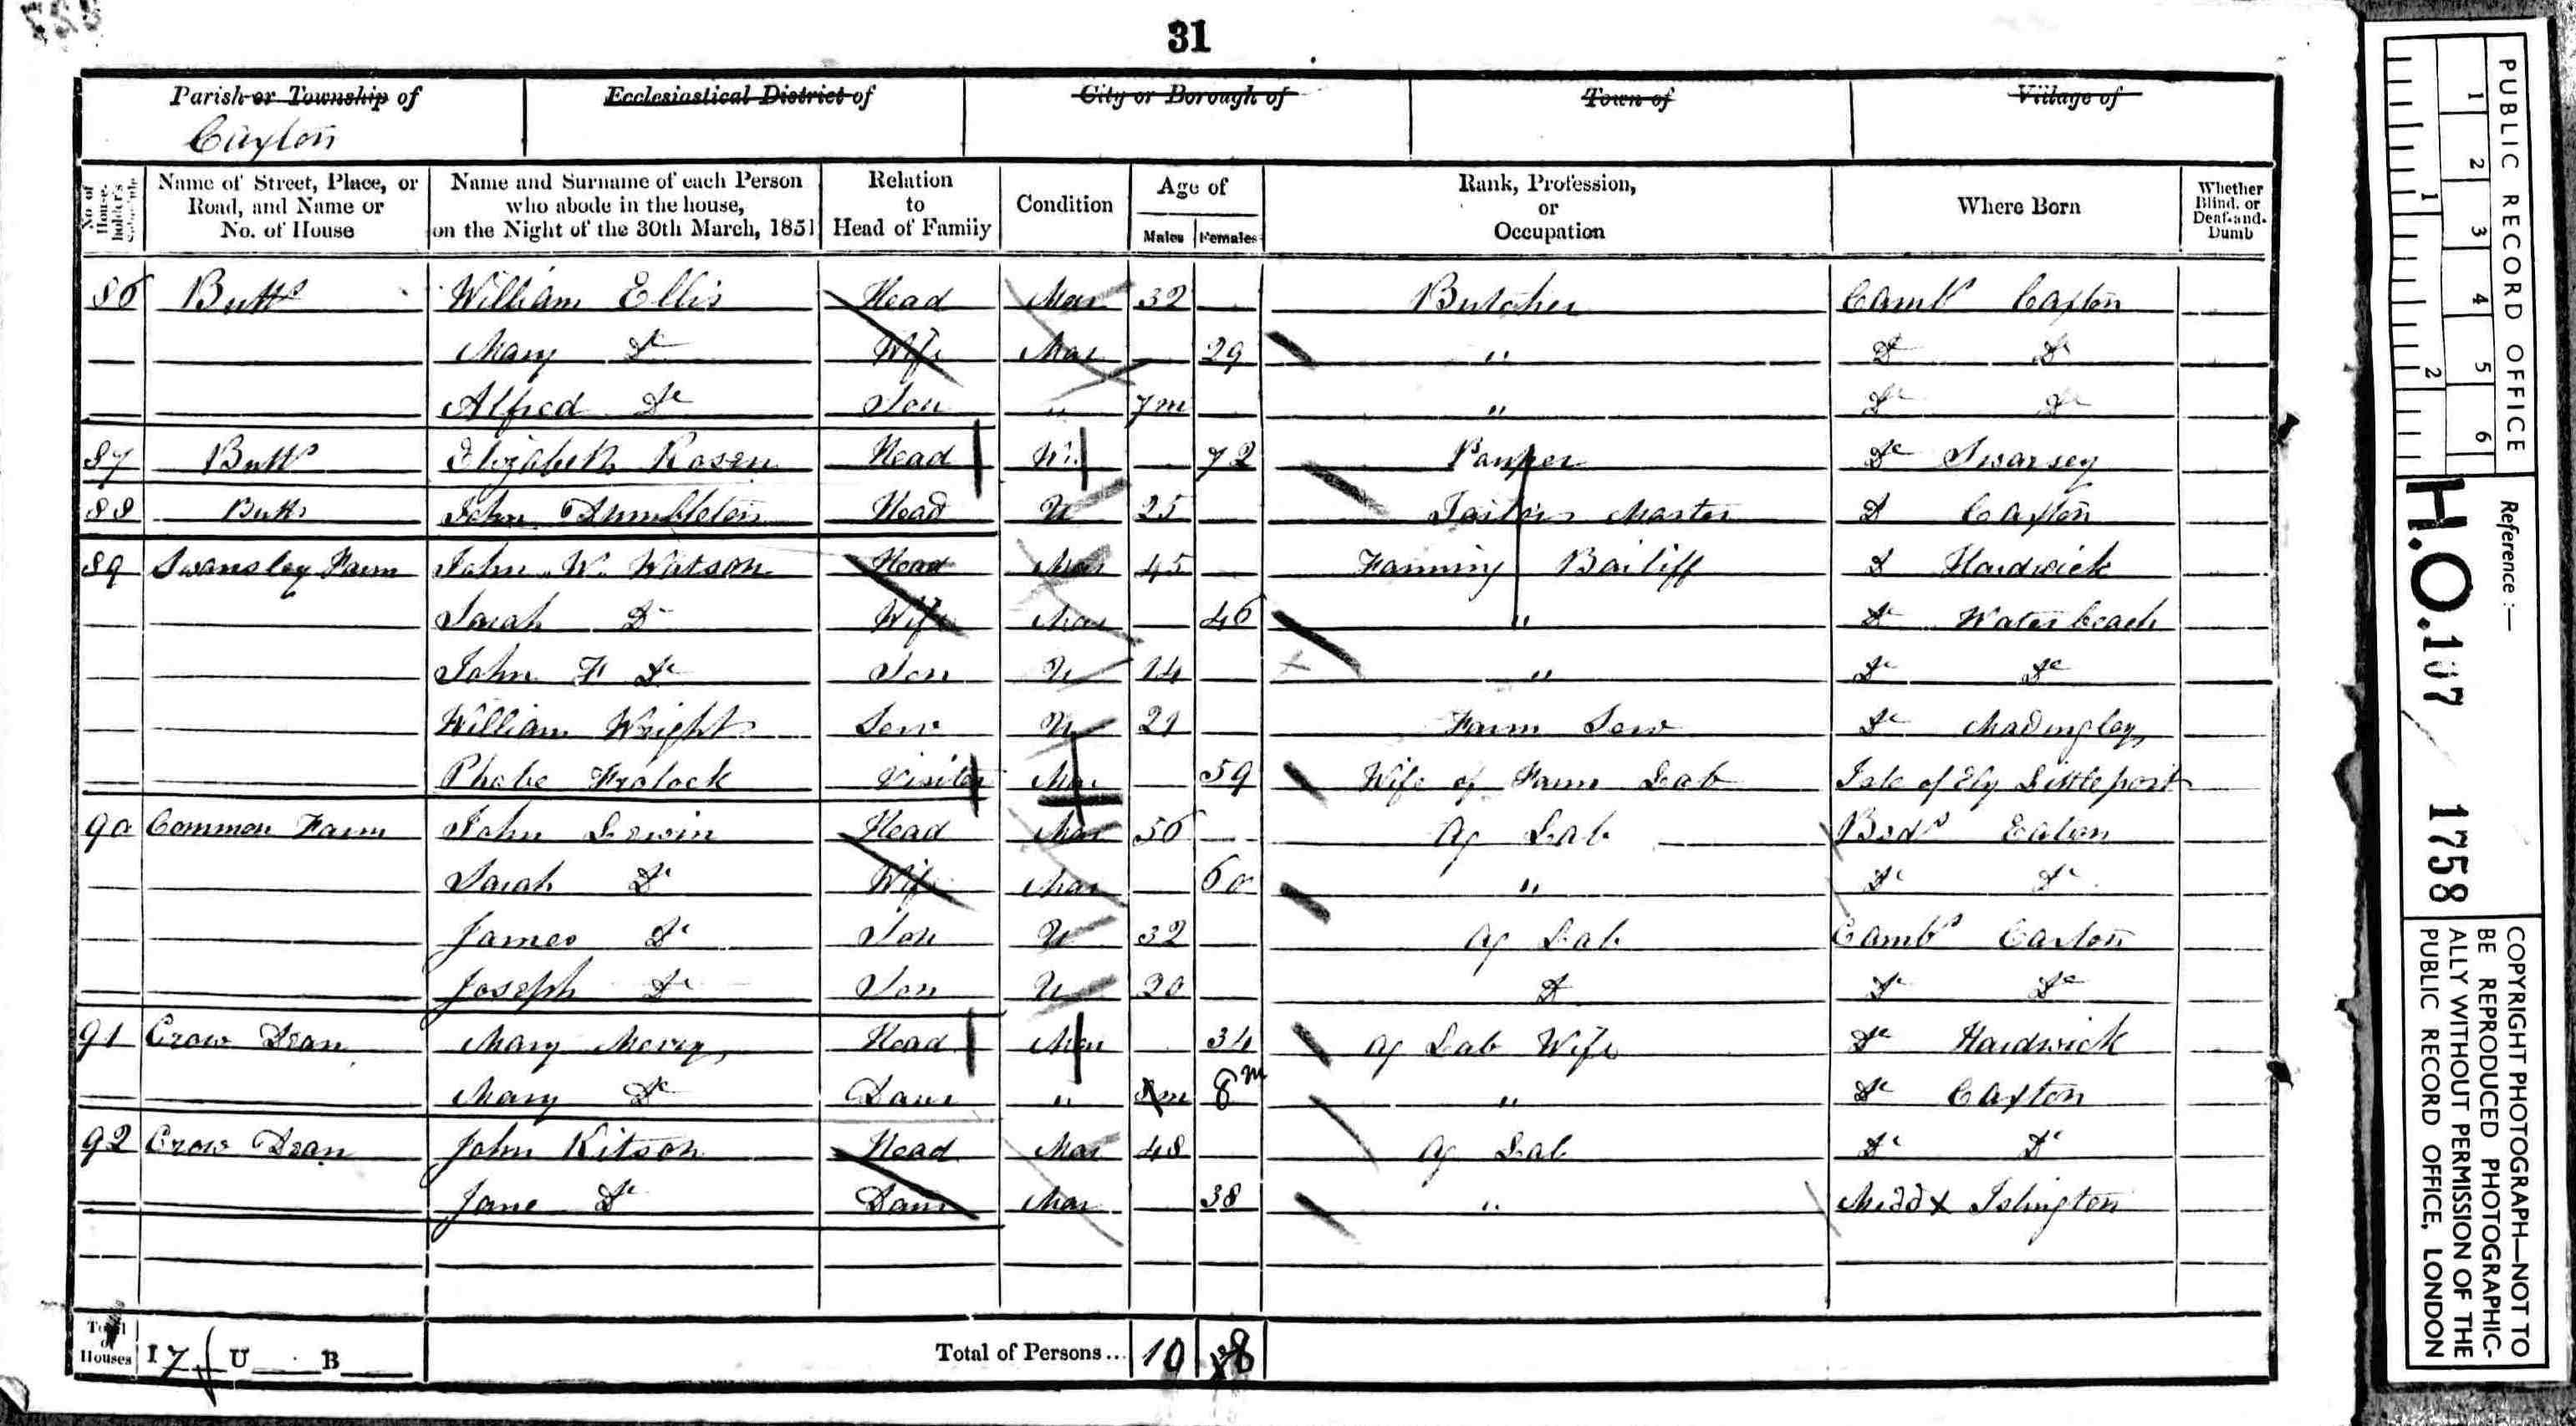 31
Parish or Township of
Caxton
Ecclesiastical District of
City or Borough of
Town of
Village of
No. of House-holder's Schedule
Name of Street, Place, or Road, and Name or No. of House
Name and Surname of each Person who abode in the house, on the Night of the 30th March, 1851
Relation to Head of Family
Condition
Age of
Males
Females
Rank, Profession, or Occupation
Where Born
Whether Blind, or Deaf-and-Dumb
86 Butts William Ellis Head Mar 32 Butcher Cambs Caxton
Mary Do Wife Mar 29 " Do Do
Alfred Do Son " 7m " Do Do
87 Butts Elizabeth Head W 72 Pauper Do Swavsey
88 Butts John Dumbleton Head U 25 Tailor Master Do Caxton
89 Swansley Farm John W. Watson Head Mar 45 Farming Bailiff Do Hardwick
Sarah Do Wife Mar 46 " Do Waterbeach
John F Do Son U 14 " Do Do
William Wright Serv U 21 Farm Serv Do Madingley
Phebe Visitor Mar 59 Wife of Farm Lab Isle of Ely Littleport
90 Common Farm John Head Mar 56 Ag Lab Beds Eaton
Sarah Do Wife Mar 60 " Do Do
James Do Son U 32 Ag Lab Cambs Caxton
Joseph Do Son U 20 Do Do Do
91 Crow Dean Mary Head Mar 34 Ag Lab Wife Do Hardwick
Mary Do Daur " 8m 8m " Do Caxton
92 Crow Dean John Kitson Head Mar 48 Ag Lab Do Do
Jane Do Daur Mar 38 " Middx Islington
Total of Houses I 7 U B
Total of Persons... 10 8
PUBLIC RECORD OFFICE
1 2 3 4 5 6
1 2
Reference :—
H.O. 107 / 1758
COPYRIGHT PHOTOGRAPH—NOT TO
BE REPRODUCED PHOTOGRAPHIC-
ALLY WITHOUT PERMISSION OF THE
PUBLIC RECORD OFFICE, LONDON